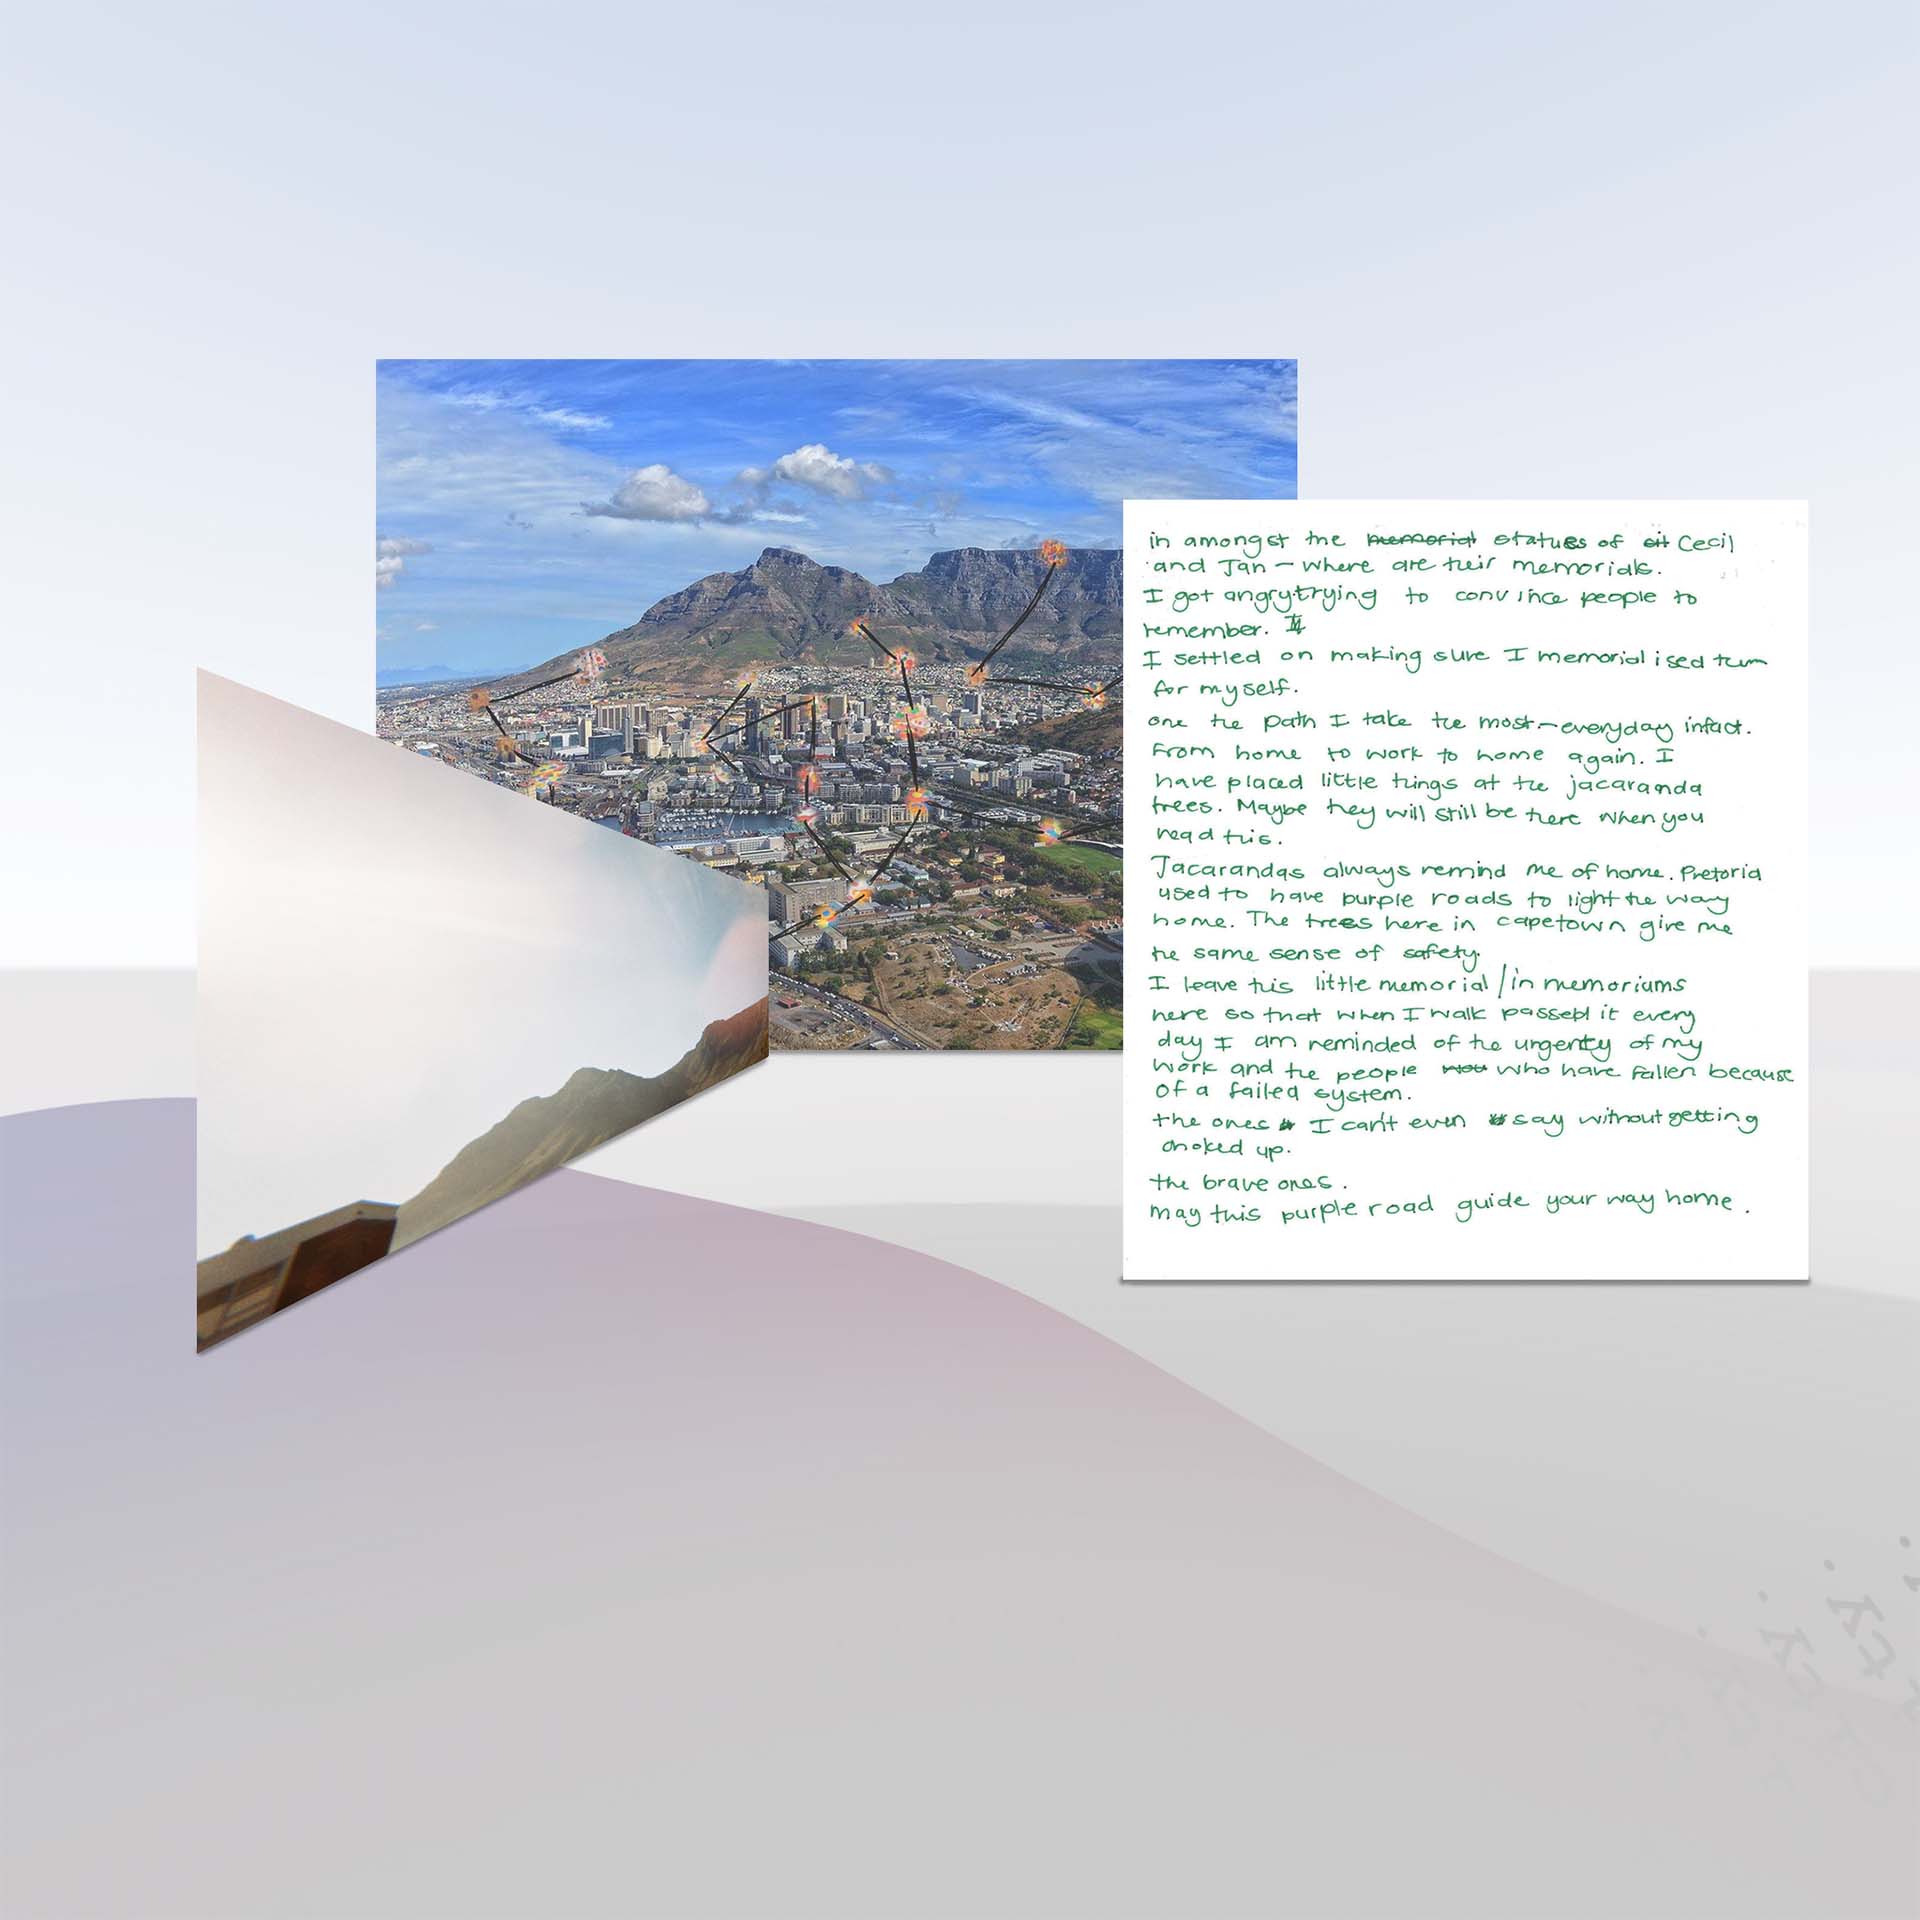 in amongst the memorial statues of Cecil
and Jan - where are their memorials.
I got angry trying to convince people to
remember.
I settled on making sure I memorialised them
for myself.
one the path I take the most - everyday infact.
From home to work to home again. I
have placed little things at the jacaranda
trees. Maybe they will still be there when you
read this.
Jacarandas always remind me of home. Pretoria
used to have purple roads to light the way
home. The trees here in capetown give me
the same sense of safety.
I leave this little memorial / in memoriums
here so that when I walk passed it every
day I am reminded of the urgency of my
work and the people who have fallen because
of a failed system.
the ones I can't even say without getting
choked up.
the brave ones.
may this purple road guide your way home.